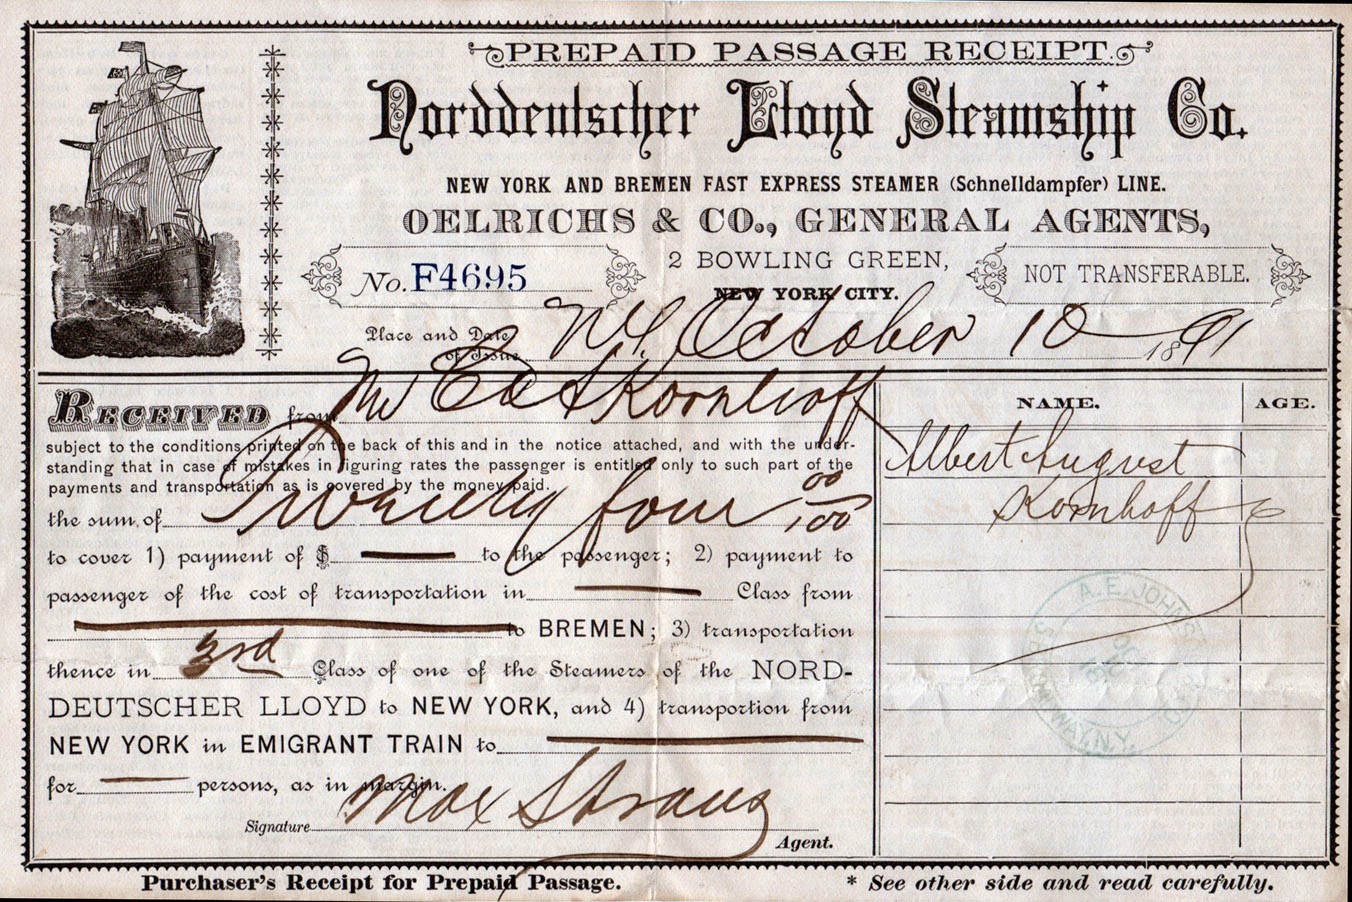 PREPAID PASSAGE RECEIPT.
Norddeutscher Lloyd Steamship Co.
NEW YORK AND BREMEN FAST EXPRESS STEAMER (Schnelldampfer) LINE.
OELRICHS & CO., GENERAL AGENTS,
No. F4695
2 BOWLING GREEN,
NEW YORK CITY.
NOT TRANSFERABLE.
Place and Date of Issue N.Y. October 10 1891
RECEIVED from Mr Ed A Kornhoff
subject to the conditions printed on the back of this and in the notice attached, and with the under-
standing that in case of mistakes in figuring rates the passenger is entitled only to such part of the
payments and transportation as is covered by the money paid.
the sum of Twenty four 00/100
to cover 1) payment of $ to the passenger; 2) payment to
passenger of the cost of transportation in Class from
to BREMEN; 3) transportation
thence in 3rd Class of one of the Steamers of the NORD-
DEUTSCHER LLOYD to NEW YORK, and 4) transportion from
NEW YORK in EMIGRANT TRAIN to
for persons, as in margin.
Signature Max Straus
Agent.
NAME. AGE.
Albert August
Kornhoff
A. E. JOHNS
WAY, N.Y.
Purchaser's Receipt for Prepaid Passage.
* See other side and read carefully.